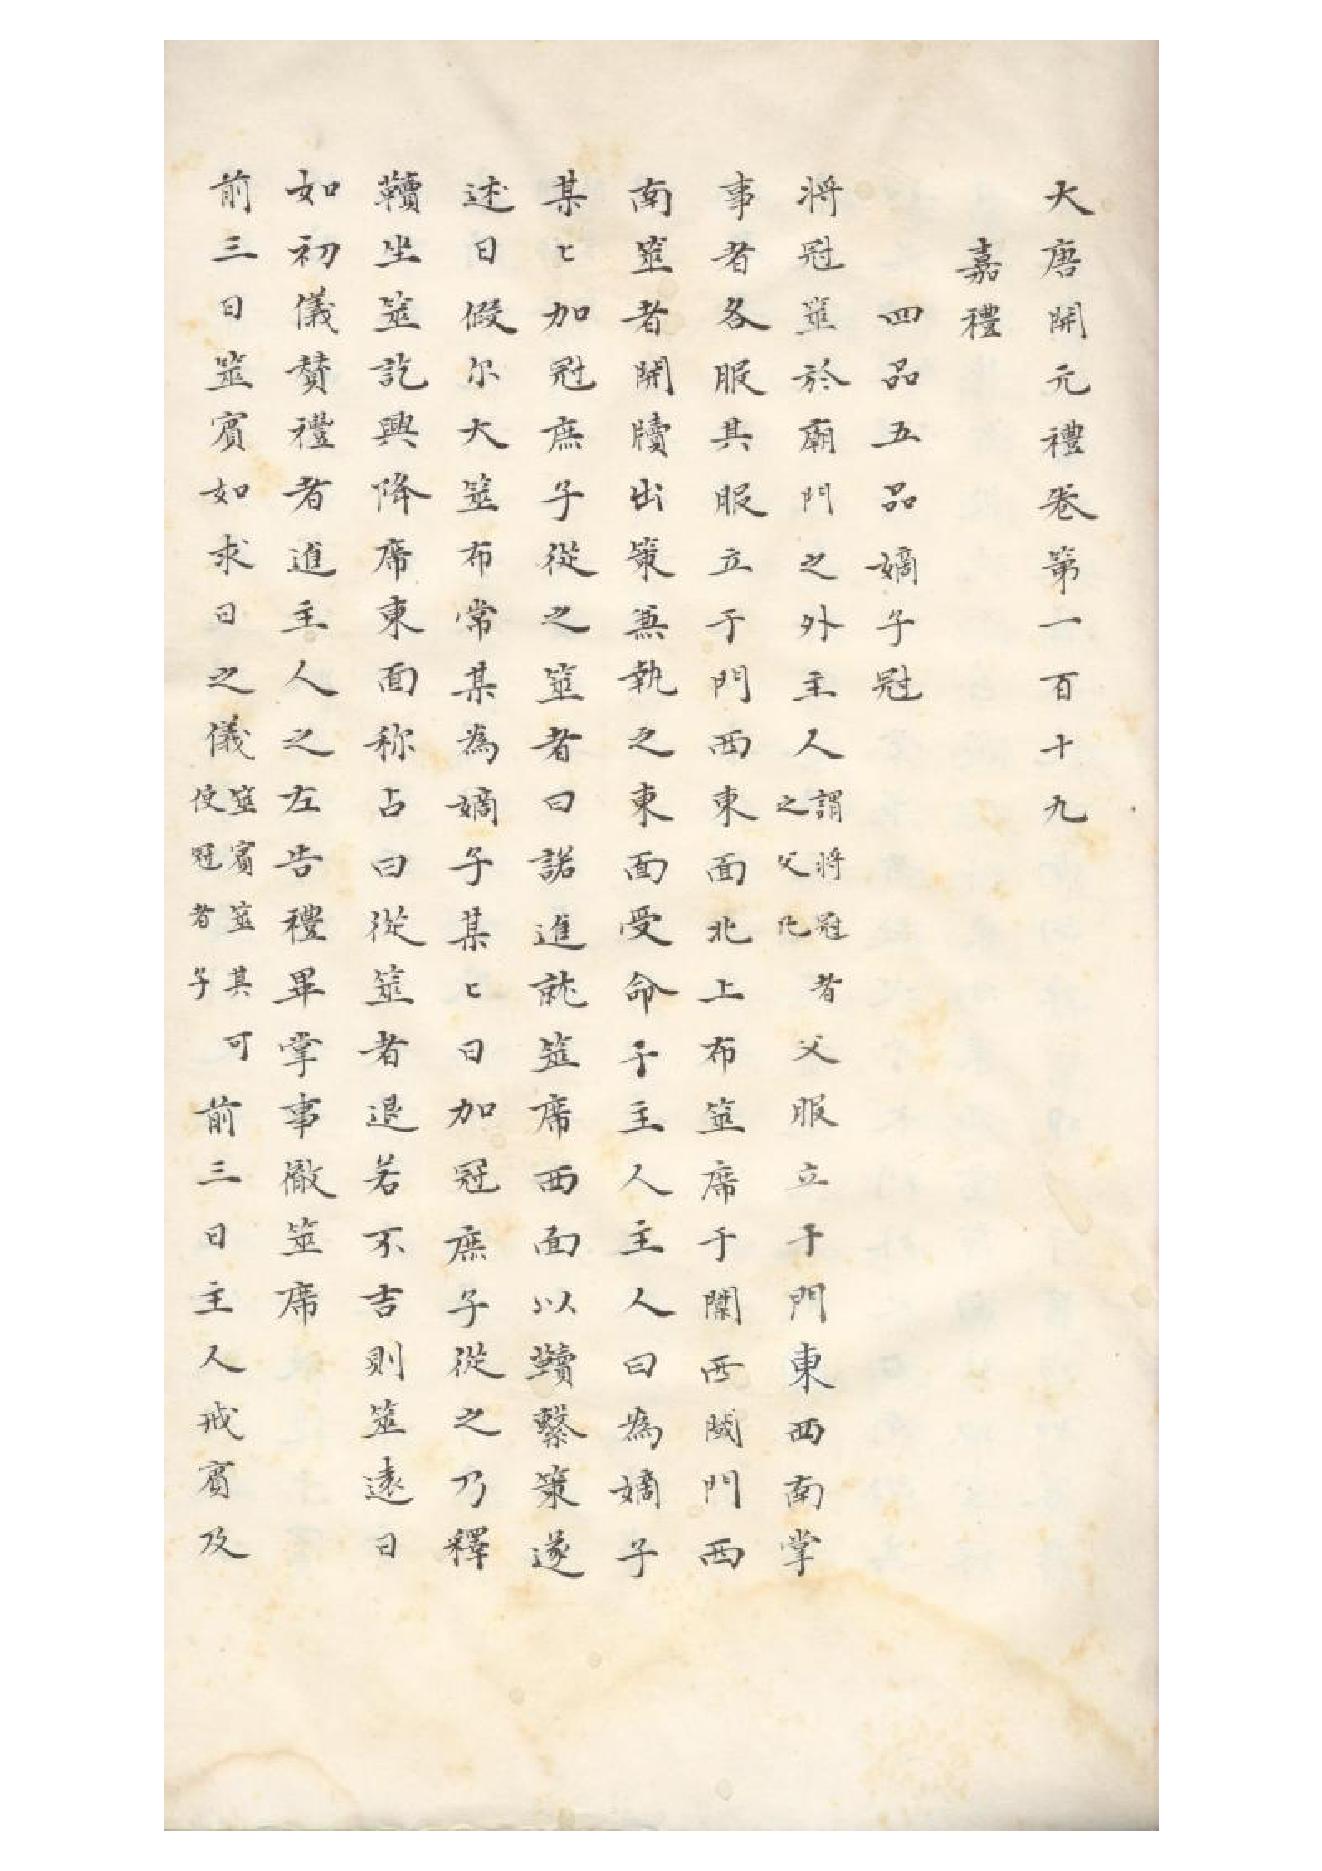 大唐開元禮卷第一百十九
嘉禮
四品五品嫡子冠
將冠筮於廟門之外主人謂將冠者之父凡父服立于門東西南掌
事者各服其服立于門西東面北上布筮席于闑西閾門西
南筮者開牘出策兼執之東面受命于主人主人曰為嫡子
某〻加冠庶子從之筮者曰諾進就筮席西面以韇擊策遂
述曰假尔大筮布常某為嫡子某〻日加冠庶子從之乃釋
韇坐筮訖興降席東面称占曰從筮者退若不吉則筮遠日
如初儀贊禮者進主人之左告禮畢掌事徹筮席
前三日筮賓如求日之儀筮賓筮其可使冠者子前三日主人戒賓及